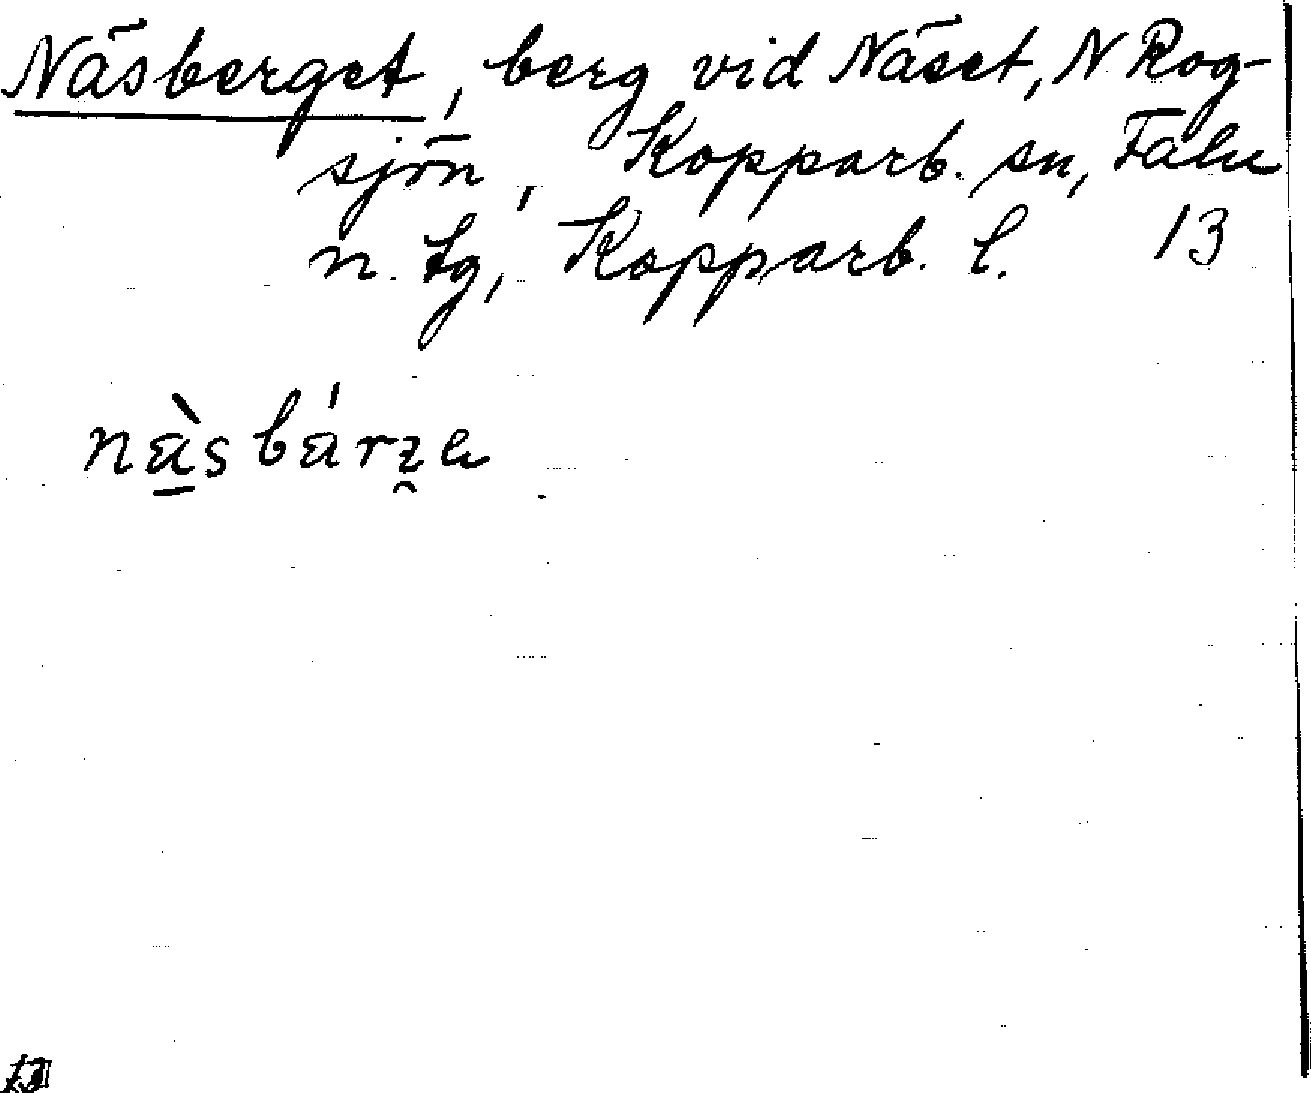 Näsberget, berg vid Näset, N Rog-
sjön, Kopparb. sn, Falu
n. tg, Kopparb. l. 13
näsbärze